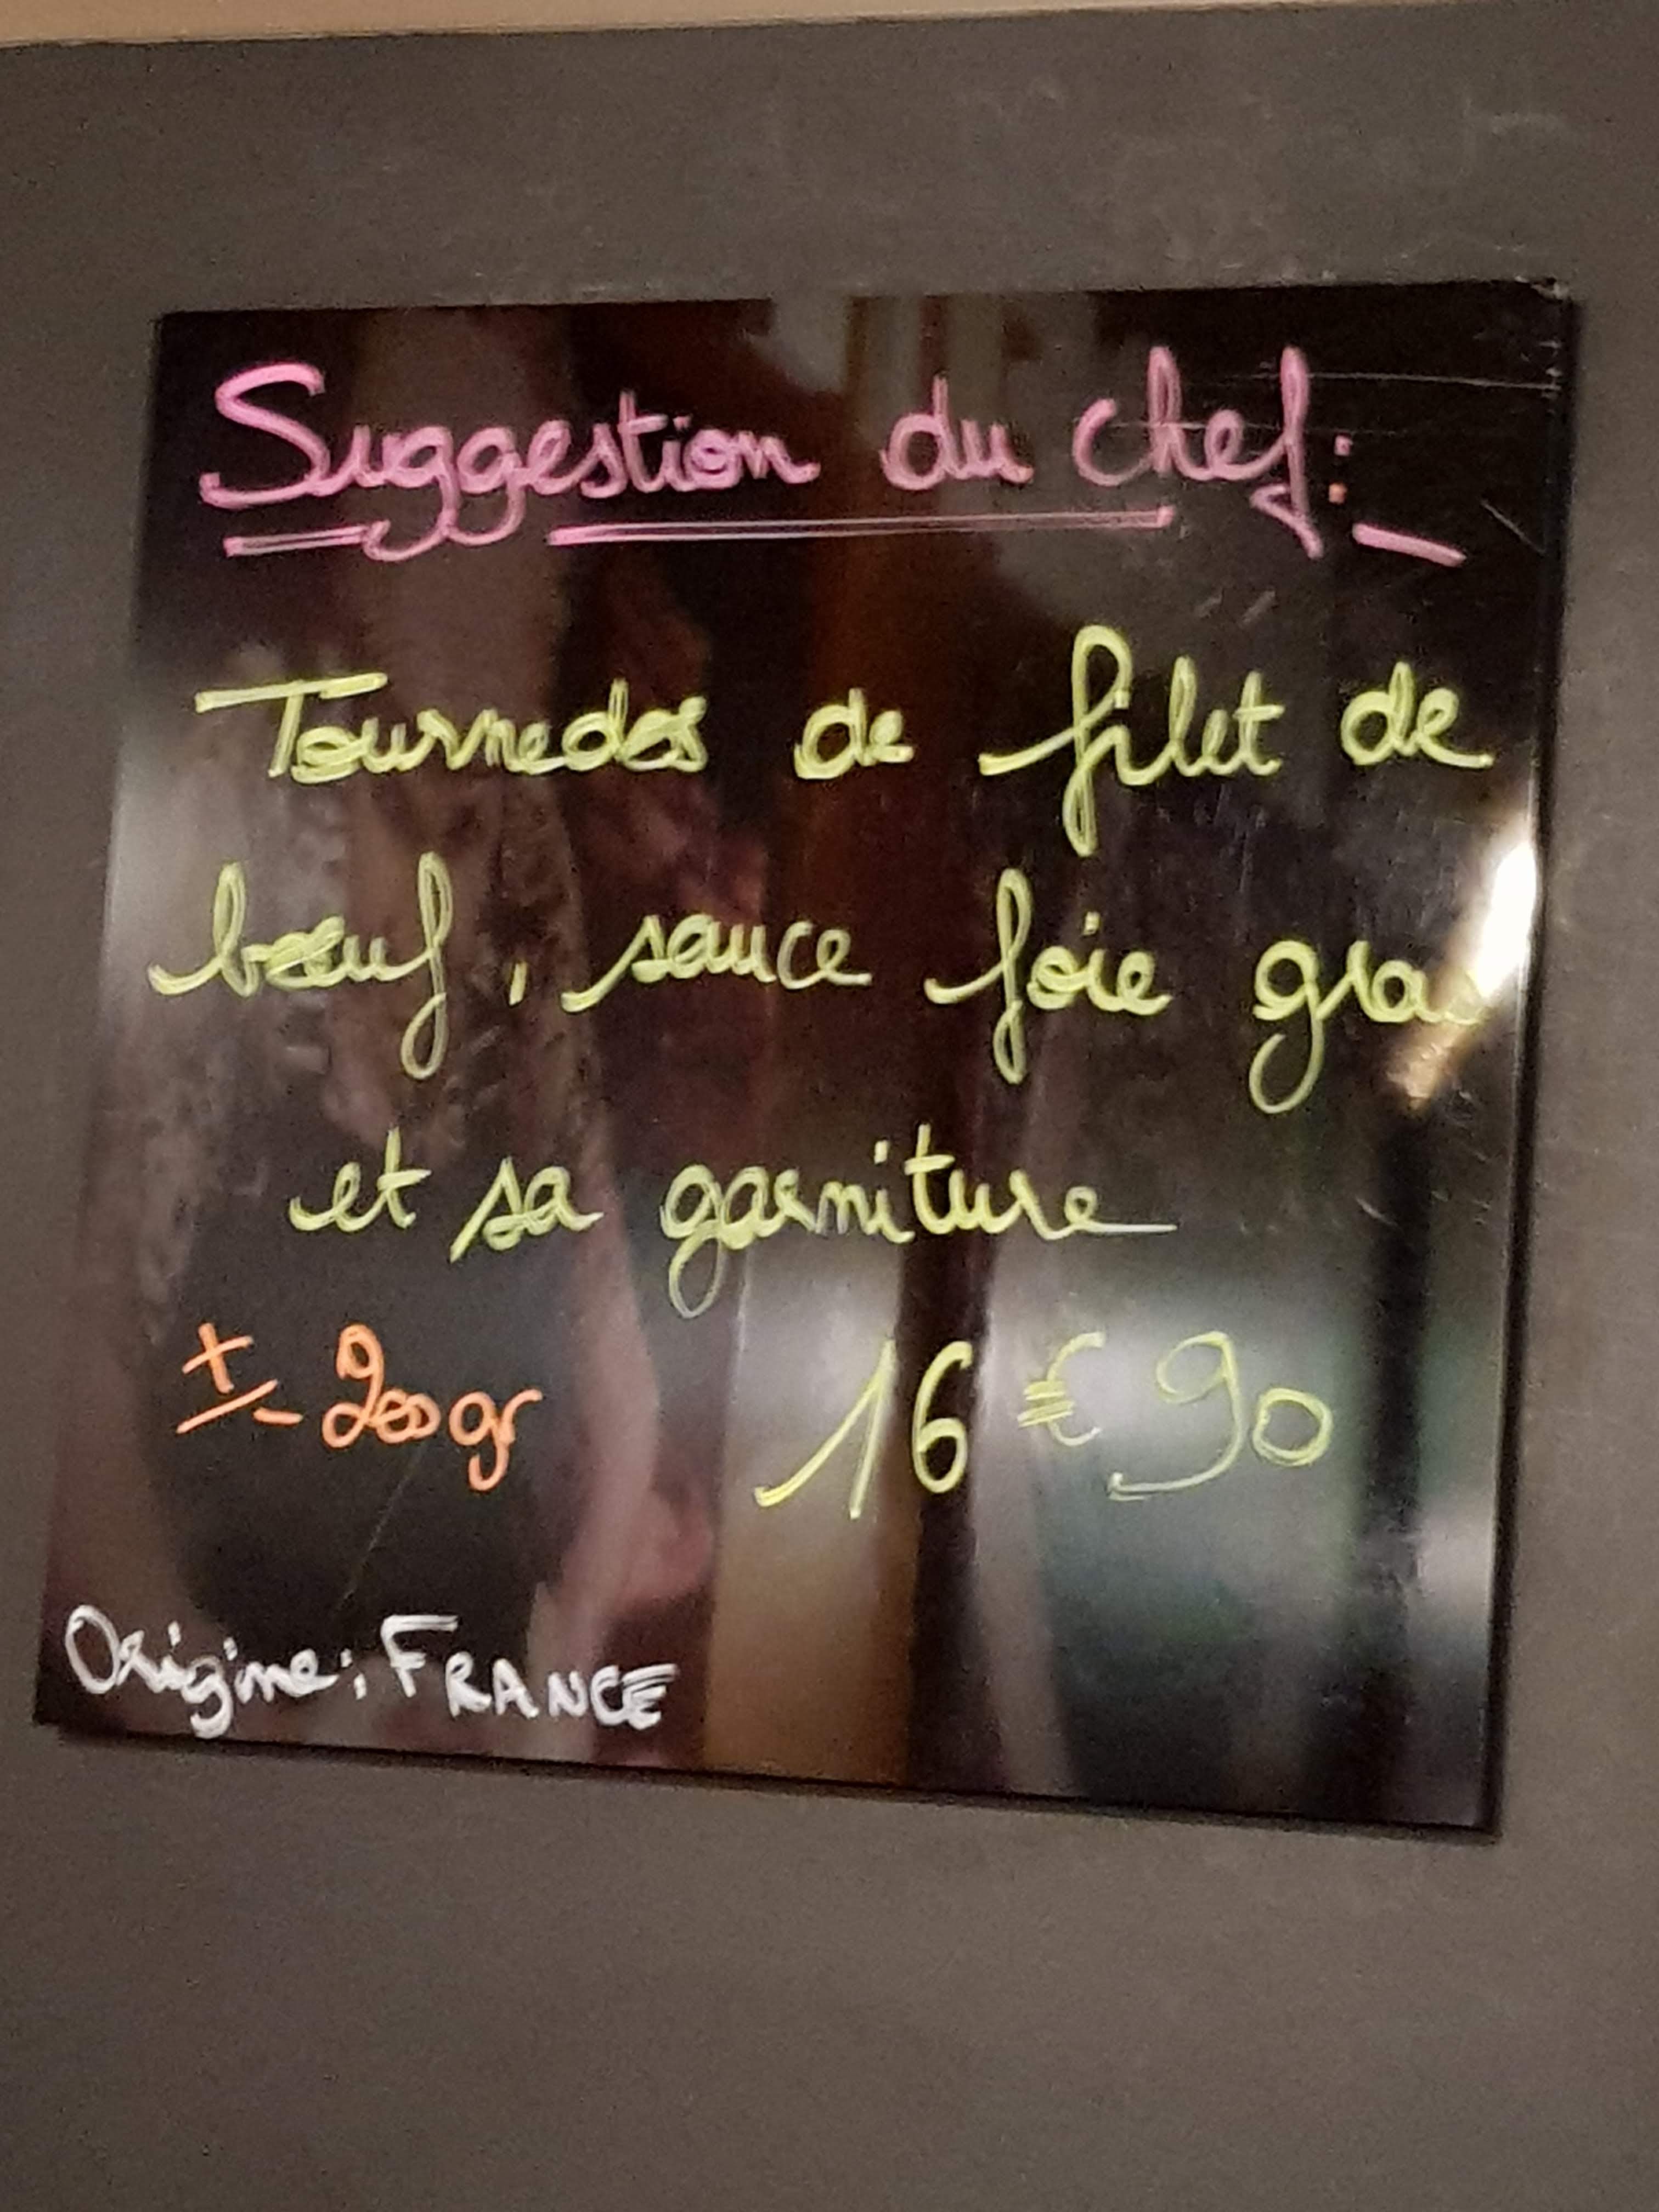 Suggestion du chef:
Tournedos de filet de
bœuf, sauce foie gras
et sa garniture
+/- 200gr 16€90
Origine: FRANCE